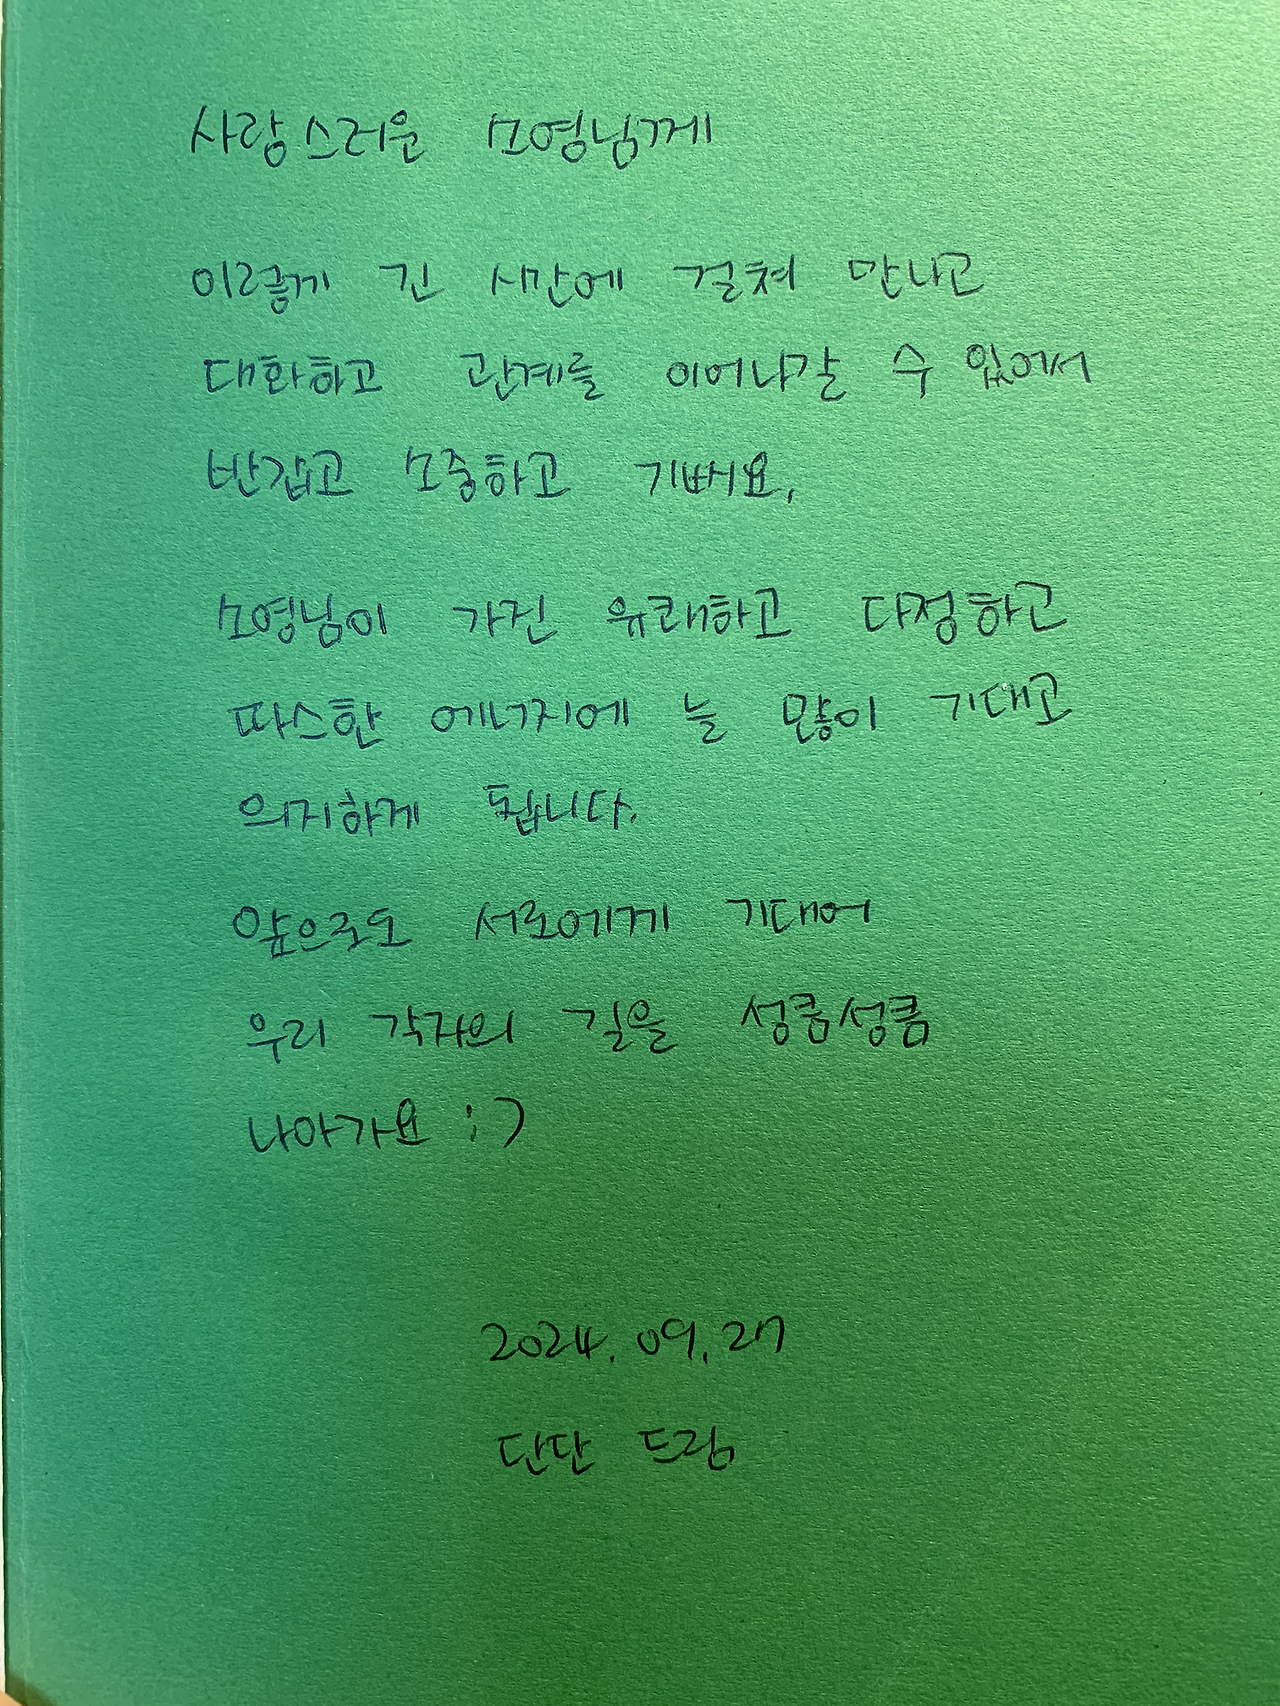 사랑스러운 모영님께
이렇게 긴 시간에 걸쳐 만나고
대화하고 관계를 이어나갈 수 있어서
반갑고 소중하고 기뻐요.
모영님이 가진 유쾌하고 다정하고
따스한 에너지에 늘 많이 기대고
의지하게 됩니다.
앞으로도 서로에게 기대어
우리 각자의 길을 성큼성큼
나아가요 :)
2024. 09. 27
단단 드림